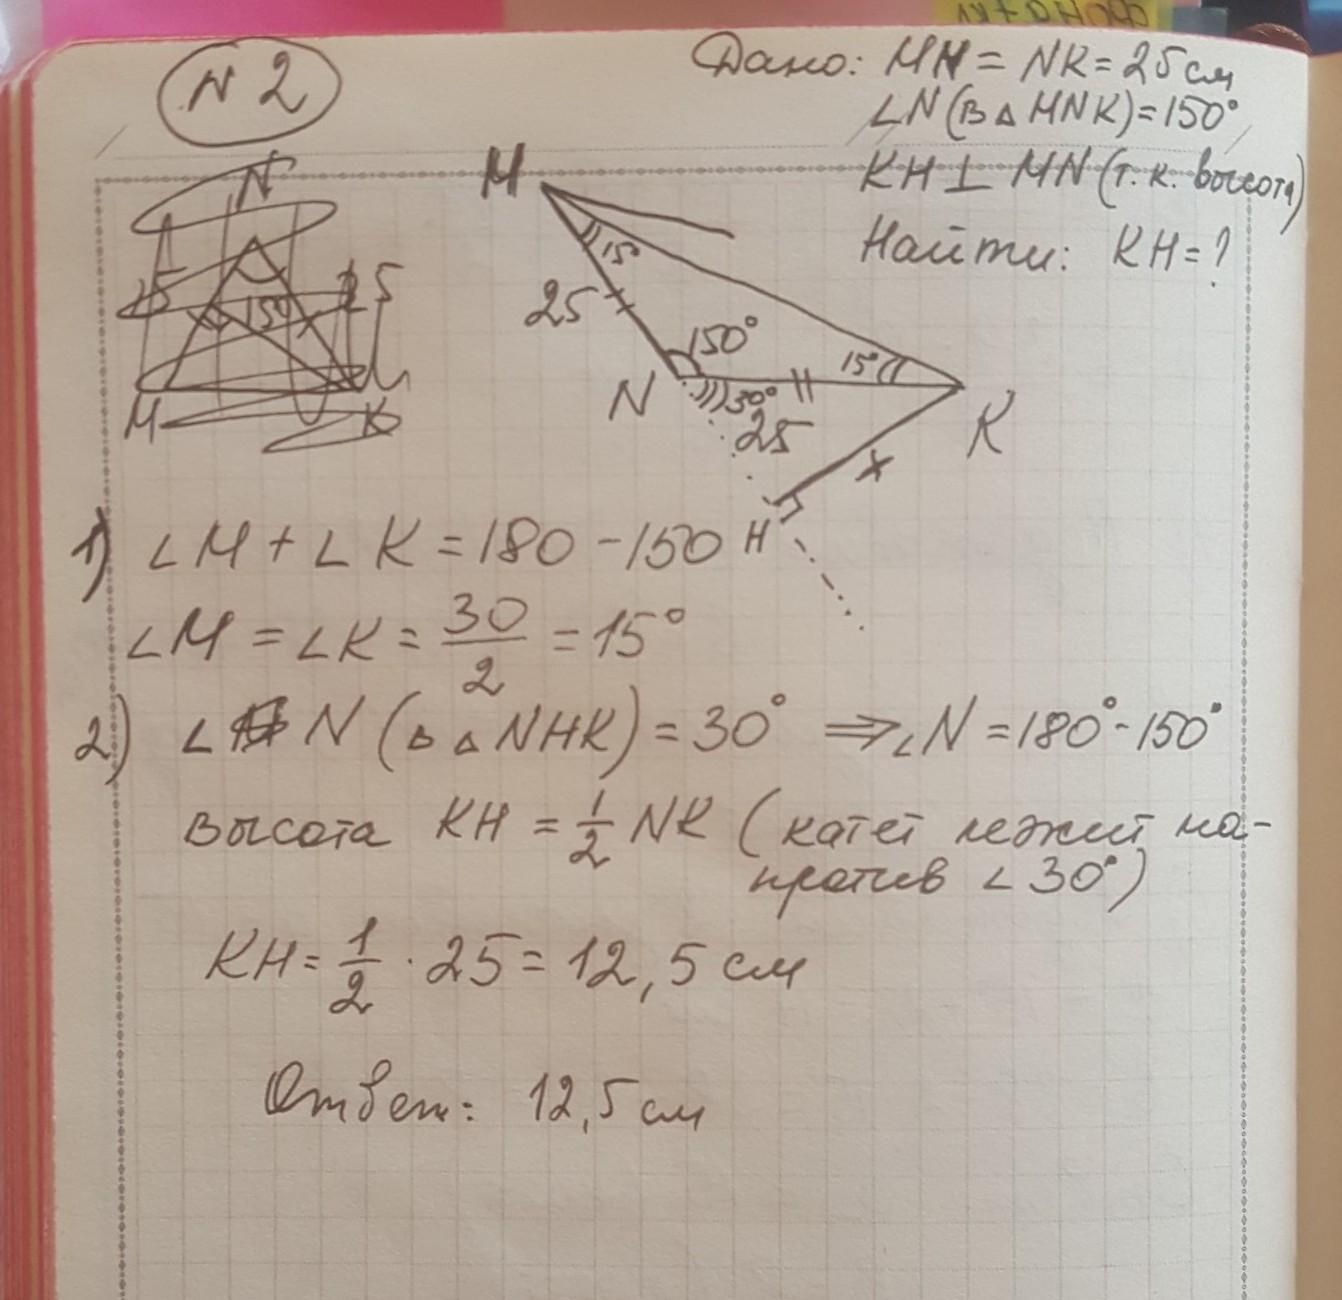 N 2
Дано: MN = NK = 25 см
∠N (в △ MNK) = 150°
KH ⊥ MN (т.к. высота)
Найти: KH = ?
N
25
150
25
M
K
M
15°
25
150°
15°
N
30°
25
K
x
H
1) ∠M + ∠K = 180 - 150
∠M = ∠K = 30/2 = 15°
2) ∠N (в △ NHK) = 30° ⇒ ∠N = 180° - 150°
высота KH = 1/2 NK (катет лежит на-
против ∠30°)
KH = 1/2 · 25 = 12,5 см
Ответ: 12,5 см